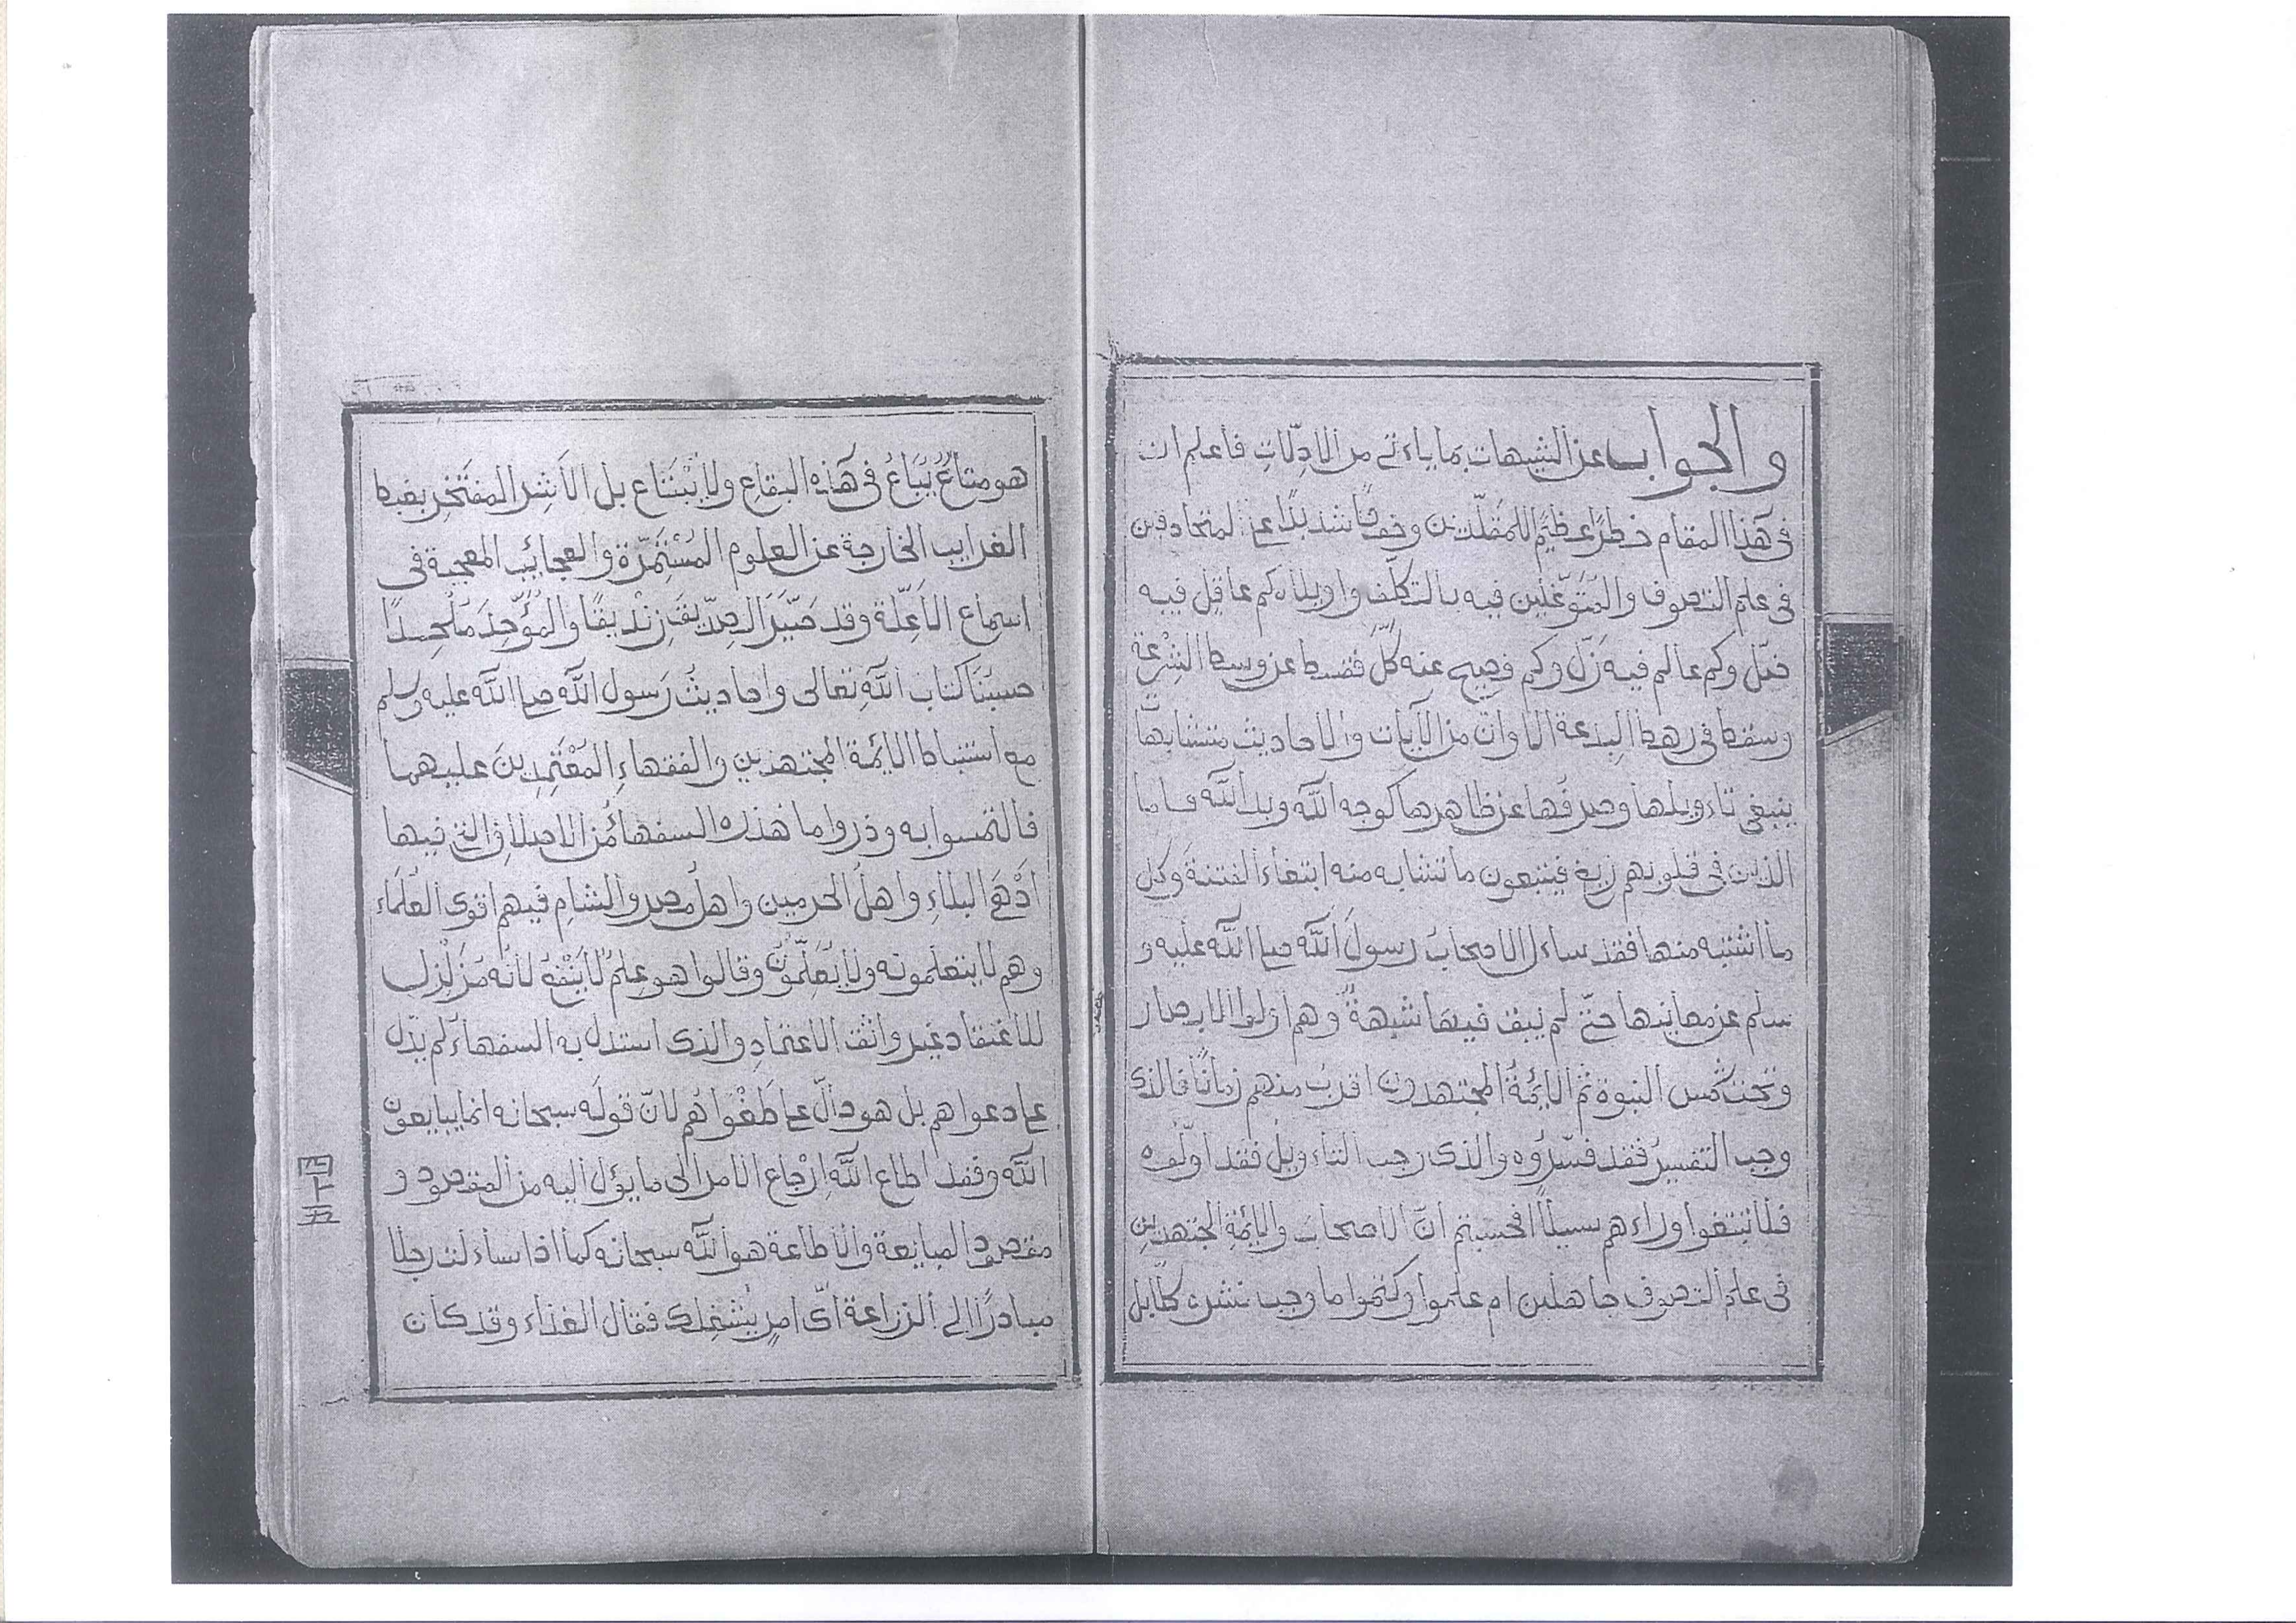 والجواب عن الشبهات بما ياءتى من الادِلّاتِ فاعلم ان
فى هذا المقام خطرًا عظيمًا للمقلّدين وخوفًا شديدًا على المتحاذفين
فى علم التصوف والمتوغّلين فيه بالتكلّف واويلاه كم عاقل فيه
ضلّ وكم عالم فيه زلّ وكم فصيح عنه كلّ فقسط عن وسط الشرعة
وسقط فى رهط البدعة الا وان من الآيات والاحاديث متشابهًا
ينبغى تاءويلها وصرفُها عن ظاهرها كوجه الله ويد الله فاما
الذين فى قلوبهم زيغ فيتبعون ما تشابه منه ابتغاء الفتنة وكل
ما اشتبه منها فقد ساءل الاصحابُ رسولَ الله صلى الله عليه و
سلم عن معانيها حتى لم يبق فيها شبهةٌ وهم اولوا الابصار
وتحت شمس النبوة ثم الايمةُ المجتهدون اقربُ منهم زمانًا فالذى
وجب التفسيرُ فقد فسّروُه والذى وجب التاءويلُ فقد اوّلُوه
فلا تبتغوا وراءهم سبيلًا افحسبتم انّ الاصحابَ والايمّةِ المجتهدين
فى علم التصوف جاهلين ام علموا وكتموا ما وجب نشره كلّا بل
هو متاعٌ يُبَاعُ فى هذه البقاع ولا يُبْتَاع بل الاَشِر المفتَخِر بضبط
الغرايب الخارجة عن العلوم المُسْتَمَرّة والعجائب المعجبة فى
اسماع الاَعِلّة وقد صَيَّرَ الصِدّيقَ زنديقًا والمُؤَحِّدَ مُلْحِدًا
حسبُنَا كتاب اللهِ تعالى واحاديثُ رَسول الله صلى الله عليه وسلم
مع استنباط الايمة المجتهدين والفقهاءِ المُعْتَمِدِينَ عليهما
فالتمسوا به وذروا ما هذه السفهاءُ من الاصلاف التى فيها
ادْهَى البلاءِ واهلُ الحرمين واهلُ مصر والشامِ فيهم اقوى العُلَمَاء
وهم لا يتعلمونه ولا يُعَلِّمُونَ وقالوا هو علمٌ لا يَنْفَعُ لانه مَزَلْزِل
للاعْتقاد غير واثق الاعتمادِ والذى استدل به السفهاءُ لم يدّل
على دعواهم بل هو دالّ على طَغْواهُم لانّ قولَه سبحانه انما يبايعون
الله وفقد اطاع الله اِرْجاع الامر الى ما يؤل اليه من المقصود و
مقصود المبايعة والاطاعة هو الله سبحانه كما اذا ساءلت رجلا
مبادرًا الى الزراعة اىّ امرٍ يُشْغِلك فقال الغذاء وقد كان
四十五